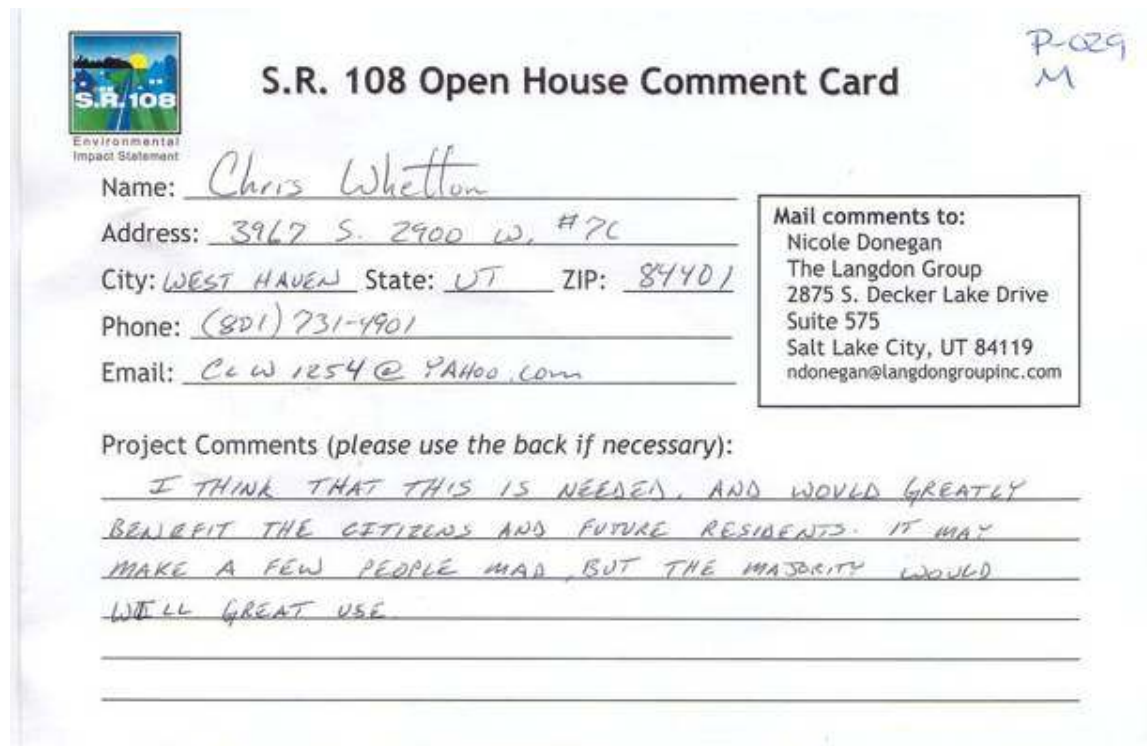 P-029
M
S.R. 108
Environmental
Impact Statement
S.R. 108 Open House Comment Card
Name: Chris Whetton
Address: 3967 S. 2900 W. #7C
City: WEST HAVEN State: UT ZIP: 84401
Phone: (801) 731-4901
Email: CLW1254@YAHOO.com
Mail comments to:
Nicole Donegan
The Langdon Group
2875 S. Decker Lake Drive
Suite 575
Salt Lake City, UT 84119
ndonegan@langdongroupinc.com
Project Comments (please use the back if necessary):
I THINK THAT THIS IS NEEDED, AND WOULD GREATLY
BENEFIT THE CITIZENS AND FUTURE RESIDENTS. IT MAY
MAKE A FEW PEOPLE MAD, BUT THE MAJORITY WOULD
WILL GREAT USE